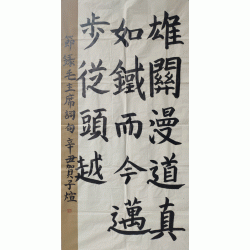 雄關漫道真
如鐵而今邁
步從頭越
節錄毛主席詞句辛丑賀子煊